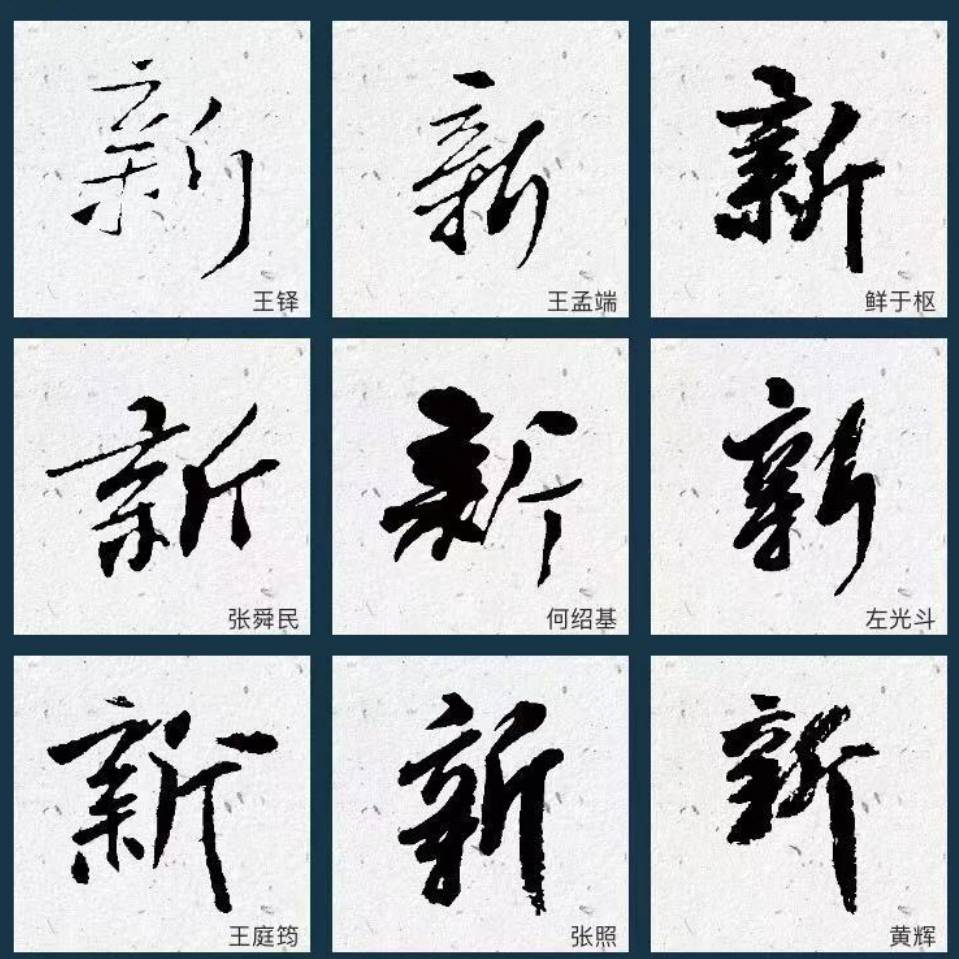 新 新 新
王铎 王孟端 鲜于枢
新 新 新
张舜民 何绍基 左光斗
新 新 新
王庭筠 张照 黄辉